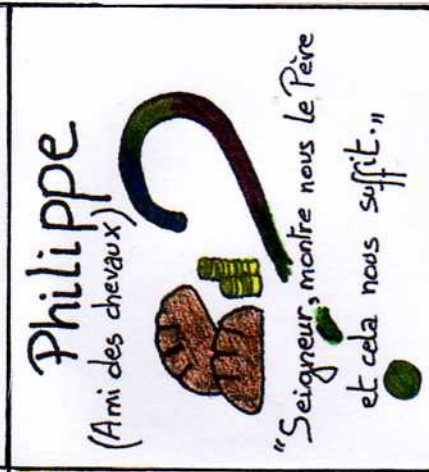 Philippe
(Ami des chevaux)
"Seigneur, montre nous le Père
et cela nous suffit."